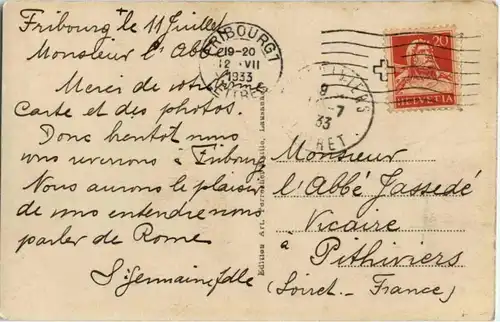 Fribourg le 11 Juillet
Monsieur l'Abbé
Merci de votre
Carte et des photos.
Donc bientôt nous
vous reverrons à Fribourg
Nous aurons le plaisir
de vous entendre nous
parler de Rome
Sr Germaine
FRIBOURG 1
19-20
12 VII
1933
PITHIVIERS
9
-7
33
LOIRET
20
HELVETIA
Edition Art. Perrochet
Lausanne
Monsieur
l'Abbé Jassedé
Vicaire
à
Pithiviers
(Loiret - France)